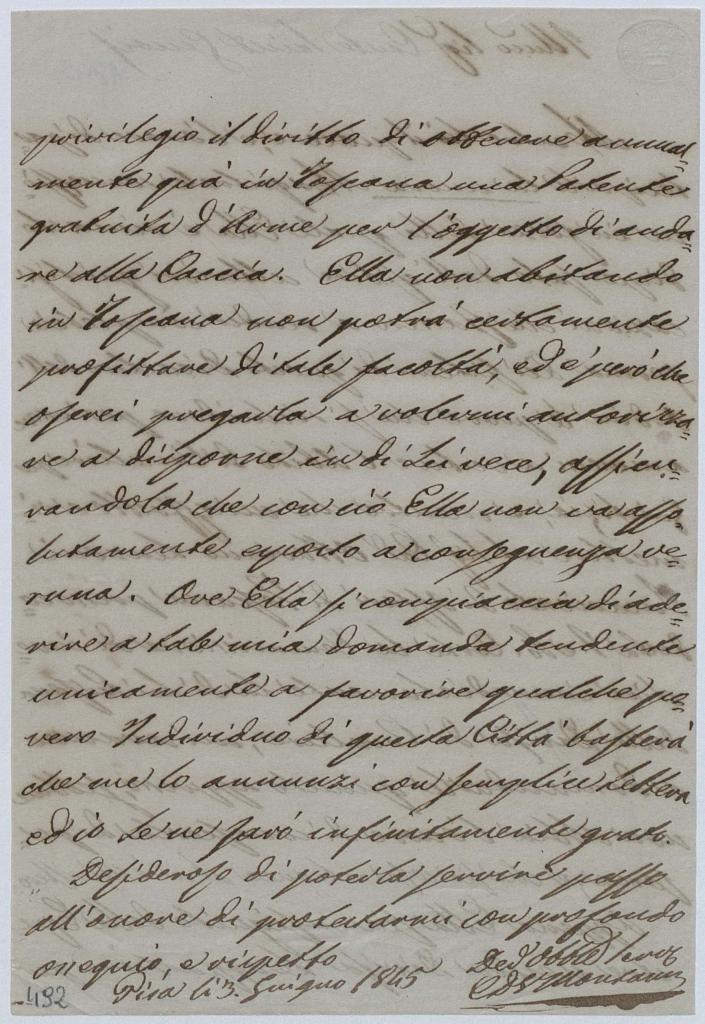 privilegio il diritto di ottenere annual=
mente quà in Toscana una Patente
gratuita d'Arme per l'oggetto di anda=
re alla Caccia. Ella non abitando
in Toscana non potrà certamente
profittare di tale facoltà, ed è però che
oserei pregarla a volermi autorizza=
re a disporne in di Lei vece, assicu=
randola che con ciò Ella non va asso=
lutamente esposto a conseguenza ve=
runa. Ove Ella si compiaccia di ade=
rire a tale mia domanda tendente
unicamente a favorire qualche po=
vero Individuo di questa Città basterà
che me lo annunzi con semplice Lettera
ed io Le ne sarò infinitamente grato.
Desideroso di poterla servire passo
all'onore di protestarmi con profondo
ossequio, e rispetto
Pisa li 3. Giugno 1845
492